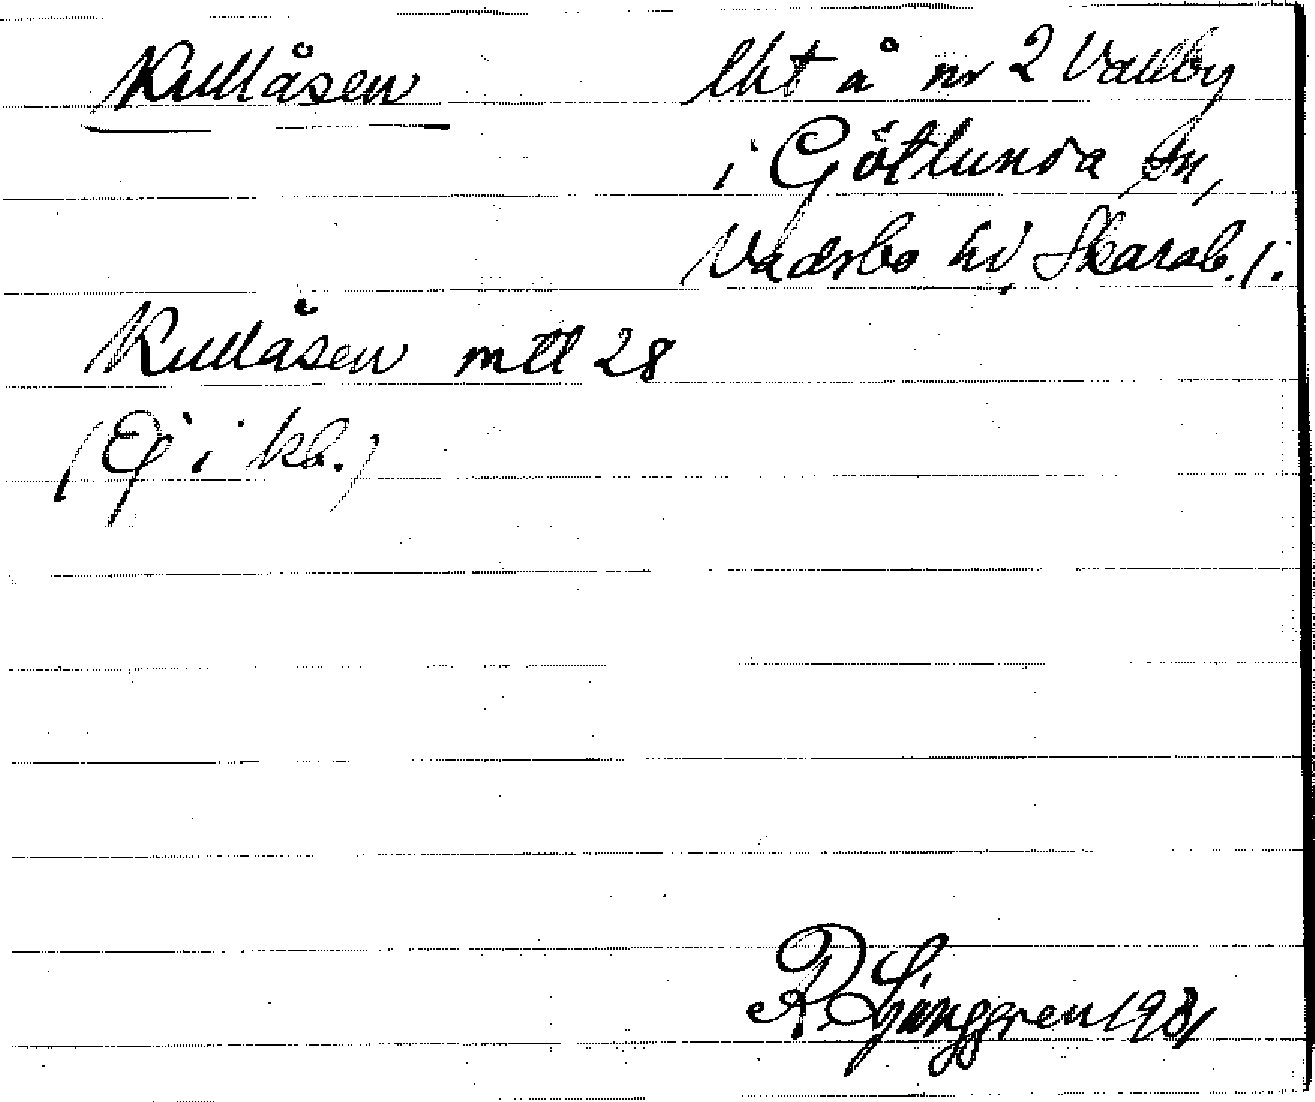 Kullåsen
lht å nr 2 Vallby
i Götlunda sn,
Vadsbo hd, Skarab. l.
Kullåsen mtl 28
(Ej i kb.)
R. Ljunggren 1931